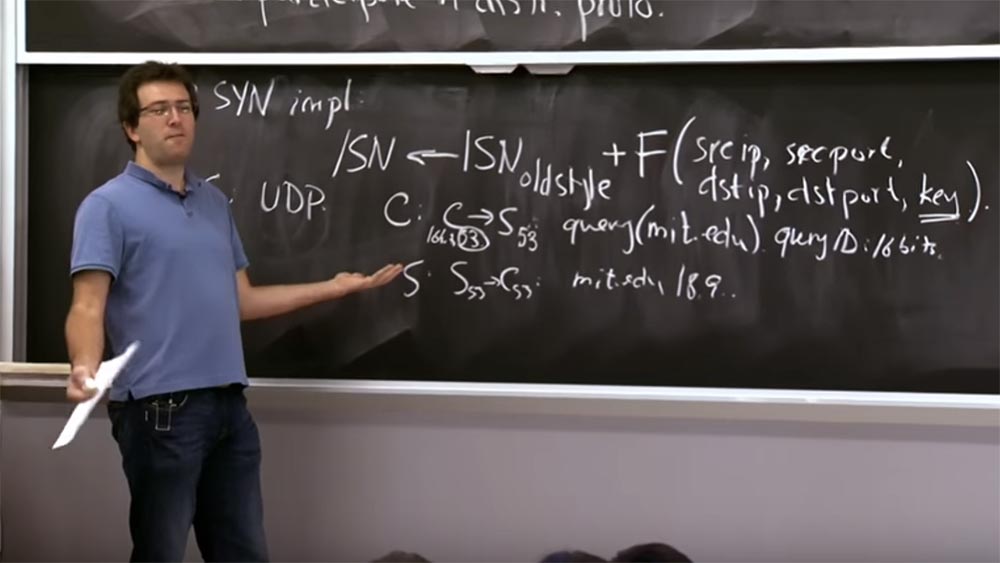 participate
SYN impl:
ISN ← ISN oldstyle + F(srcip, srcport,
dstip, dstport, key).
UDP.
C: C → S53: query(mit.edu). query ID: 16 bits.
S: S53 → C53: mit.edu, 18.9..